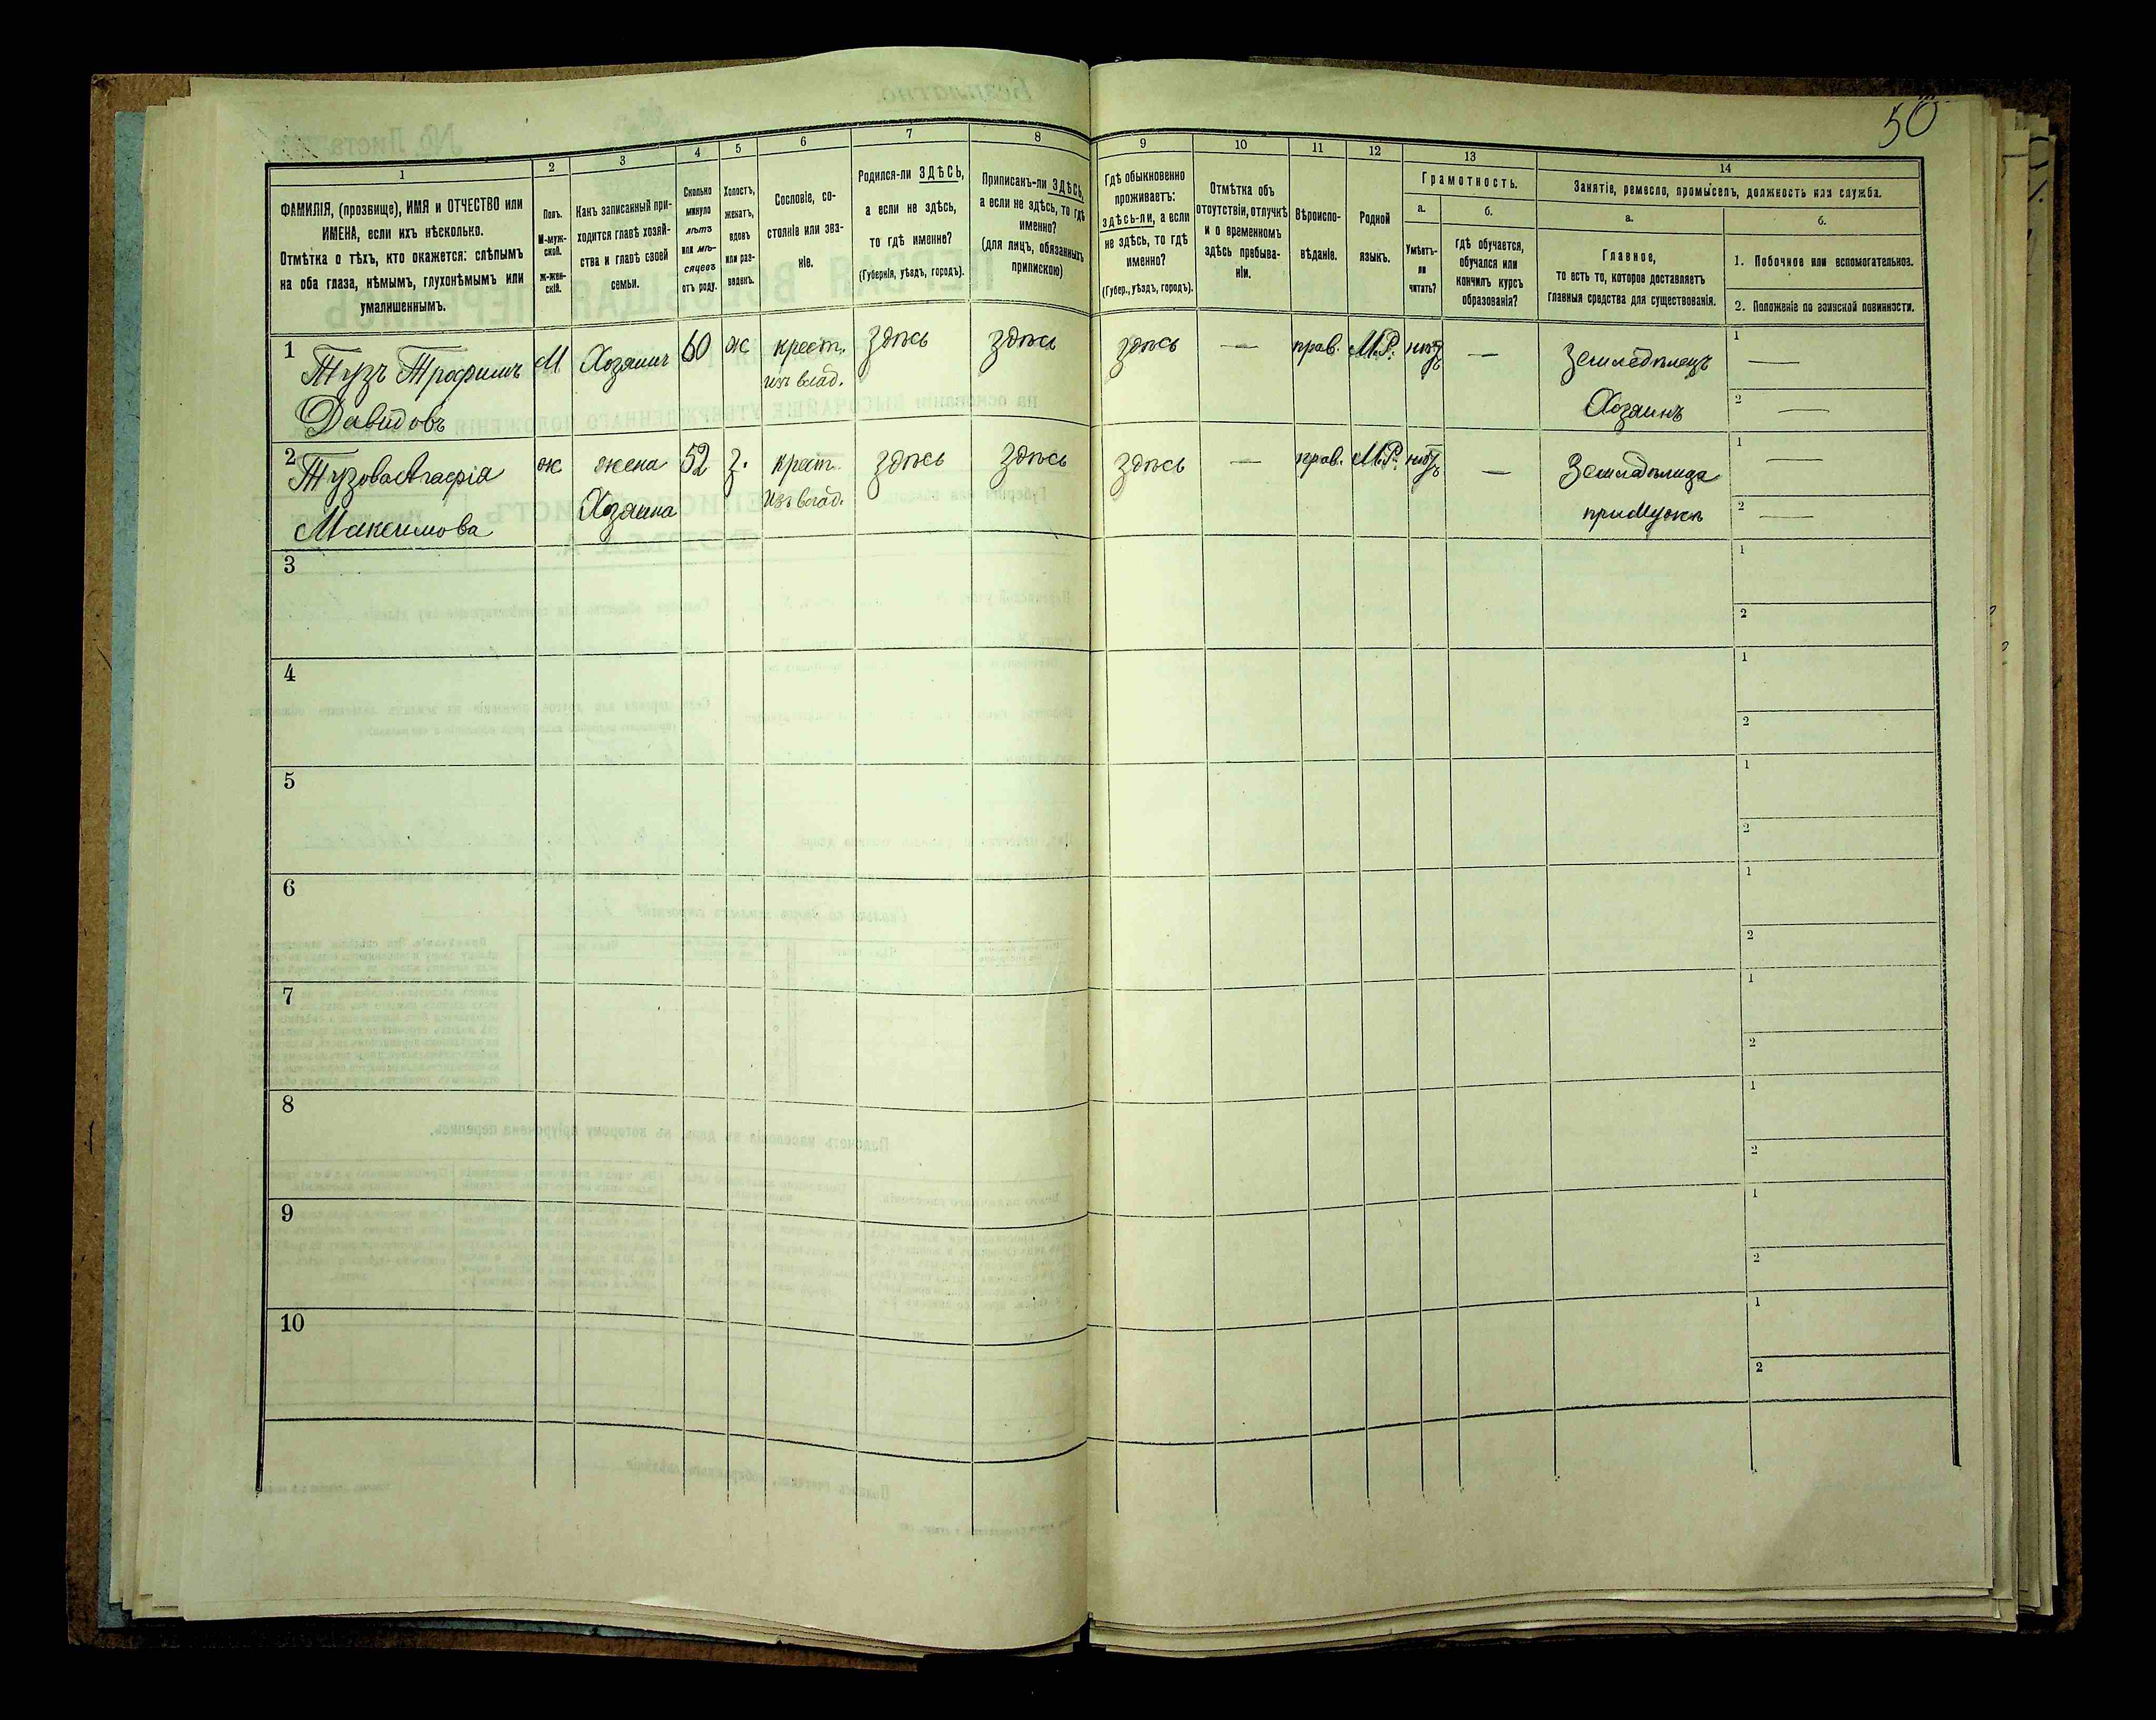 50
1
2
3
4
5
6
7
8
9
10
11
12
13
14
ФАМИЛІЯ, (прозвище), ИМЯ и ОТЧЕСТВО или
ИМЕНА, если ихъ нѣсколько.
Отмѣтка о тѣхъ, кто окажется: слѣпымъ
на оба глаза, нѣмымъ, глухонѣмымъ или
умалишеннымъ.
Полъ.
М-муж-
ской.
ж-жен-
скій.
Какъ записанный при-
ходится главѣ хозяй-
ства и главѣ своей
семьи.
Сколько
минуло
лѣтъ
или мѣ-
сяцевъ
отъ роду.
Холостъ,
женатъ,
вдовъ
или раз-
веденъ.
Сословіе, со-
стояніе или зва-
ніе.
Родился-ли ЗДѢСЬ,
а если не здѣсь,
то гдѣ именно?
(Губернія, уѣздъ, городъ).
Приписанъ-ли ЗДѢСЬ,
а если не здѣсь, то гдѣ
именно?
(для лицъ, обязанныхъ
припискою)
Гдѣ обыкновенно
проживаетъ:
здѣсь-ли, а если
не здѣсь, то гдѣ
именно?
(Губер., уѣздъ, городъ).
Отмѣтка объ
отсутствіи, отлучкѣ
и о временномъ
здѣсь пребыва-
ніи.
Вѣроиспо-
вѣданіе.
Родной
языкъ.
Грамотность.
а.
Умѣетъ-
ли
читать?
б.
гдѣ обучается,
обучался или
кончилъ курсъ
образованія?
Занятіе, ремесло, промыселъ, должность или служба.
а.
Главное,
то есть то, которое доставляетъ
главныя средства для существованія.
б.
1. Побочное или вспомогательное.
2. Положеніе по воинской повинности.
1 Тузъ Трофимъ М Хозяинъ 60 ж крест. здѣсь здѣсь здѣсь — прав. М.Р. нѣтъ — Земледѣлецъ 1 —
Давидовъ изъ влад. Хозяинъ 2 —
2 Тузова Агафія ж жена 52 з. крест. здѣсь здѣсь здѣсь — прав. М.Р. нѣтъ — Земледѣлица 1 —
Максимова Хозяина изъ влад. при Мужѣ 2 —
3 1
2
4 1
2
5 1
2
6 1
2
7 1
2
8 1
2
9 1
2
10 1
2